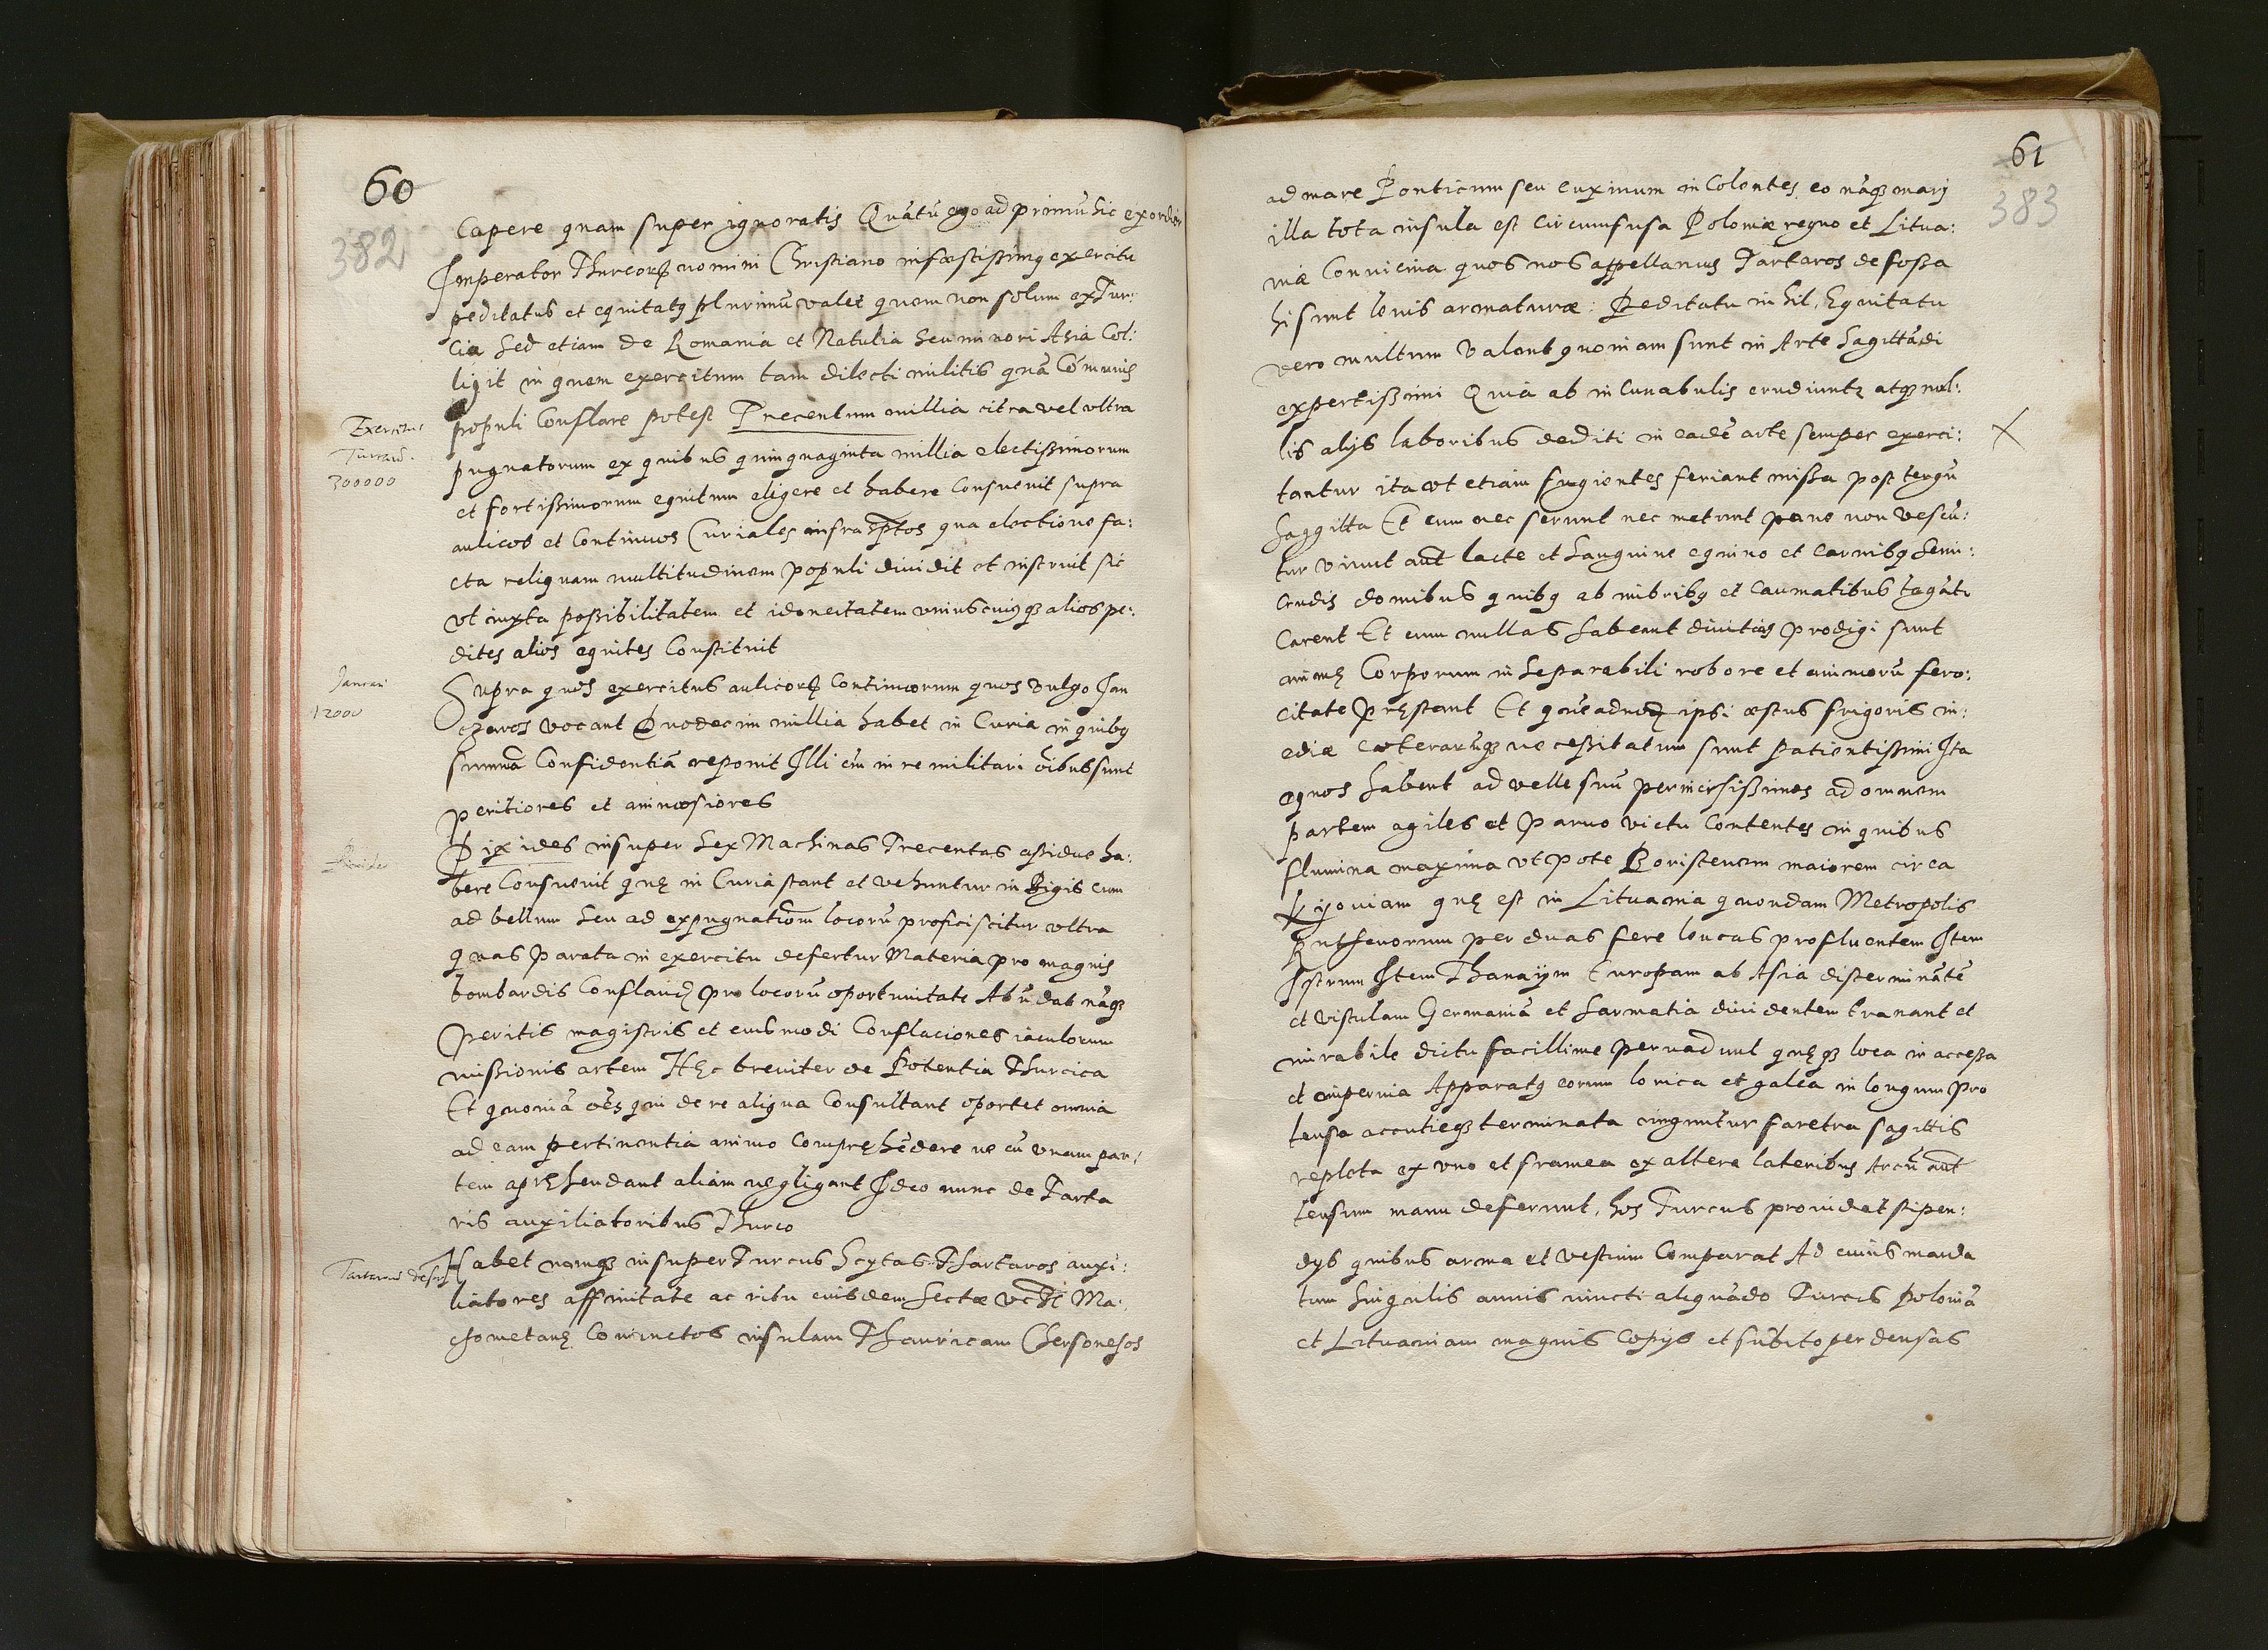 60
382
Capere quam super ignoratis Quãtũ ego ad primũ sic exordior
Imperator Thurcorꝝ nomini Christiano infæstissimꝰ exercitu
peditatus et equitatꝰ plurimũ valet quem non solum ex Tur:
cia Sed etiam de Romania et Natulia Seu minori Asia Col:
ligit in quem exercitum tam dilecti militis quã Cõmunis
populi Conflare potest Trecentum millia citra vel vltra
Exercitus
Turcarũ.
300000
pugnatorum ex quibus quinquaginta millia electissimorum
et fortissimorum equitum eligere et habere Consuevit supra
aulicos et Continuos Curiales infrasptos qua electione fa:
cta reliquam multitudinem populi dividit et instruit sic
vt iuxta possibilitatem et idoneitatem vniuscuiqꝫ alios pe:
dites alios equites Constituit
Janczari
12000
Supra quos exercitus aulicorꝝ Continuorum quos vulgo Jan
czaros vocant Duodecim millia habet in Curia in quibꝰ
summa Confidentiã reponit Illi em̃ in re militari oĩbus sunt
peritiores et animosiores
Pixides
Pixides insuper Sex Machinas Trecentas assidue ha:
bere Consuevit quę in Curia stant et vehuntur in Bigis cum
ad bellum Seu ad expugnatiom̃ locorũ proficiscitur vltra
quas Parata in exercitu defertur Materia pro magnis
bombardis Conflandꝭ pro locorũ oportunitate Abũdat nãqꝫ
Peritis magistris et eiusmodi Conflaciones iaculorum
missionis artem Hęc breviter de Potentia Thurcica
Et quoniã oẽs qui de re aliqua Consultant oportet omnia
ad eam pertinentia animo Compręhẽdere ne cũ vnam par,
tem apręhendant aliam negligant Ideo nunc de Tarta
ris auxiliatoribus Thurco
Habet namqꝫ insuper Turcus Scytas Thartaros auxi:
liatores affinitate ac ritu eiusdem Sectæ vcdt Ma:
chometanę Coniunctos insulam Thauricam Chersonesos
61
383
ad mare Ponticum seu euxinum in Colentes eo nãqꝫ mari
illa tota insula est circumfusa Poloniæ regno et Litua:
niæ Convicina quos nos appellamus Tartaros de fossa
hi sunt levis armaturæ: Peditatu nihil, Equitatu
vero multum Valent quoniam sunt in Arte Sagittãdi
expertissimi Quia ab in Cunabulis erudiunt͛ atqꝫ nul:
lis alijs laboribus dediti in eadẽ arte semper exerci:
X
tantur ita vt etiam fugientes feriant missa post tergũ
Saggitta Et cum nec serunt nec metunt pane non vescũ:
tur vivũt aut̃ lacte et Sanguine equino et carnibꝰ Semi:
Crudis domibus quibꝰ ab imbribꝰ et Caumatibus tegãt͛
Carent Et cum nullas habeant divitias prodigi sunt
animę Corporum in Separabili robore et animorũ fero:
citate Pręstant Et quẽadmoꝝ ipsi æstus frigoris in:
ediæ cæterarũqꝫ necessitatum sunt patientissimi Ita
equos habent ad velle suũ pernicissimos ad omnem
partem agiles et Parvo victu Contentos in quibus
flumina maxima vt pote Boristenem maiorem circa
Kyioviam quę est in Lituania quondam Metropolis
Ruthenorum per duas fere leucas profluentem Item
Istrum Item Thanayim Europam ab Asia disterminãtẽ
et Vistulam Germaniã et Sarmatia dividentem tranant et
mirabile dictu facillime pervadunt quęqꝫ loca in accessa
et impervia Apparatꝰ eorum lorica et galea in longum pro
tensa accutieqꝫ terminata cinguntur faretra sagittis
repleta ex vno et framea ex altera lateribus Arcũ aut̃
tensum manu deferunt, hos Turcus providet stipen:
dys quibus arma et vestium Comparat Ad cuius manda
tum Singulis annis iuncti aliquãdo Turcis Poloniã
et Lituaniam magnis Copijs et subito per densas